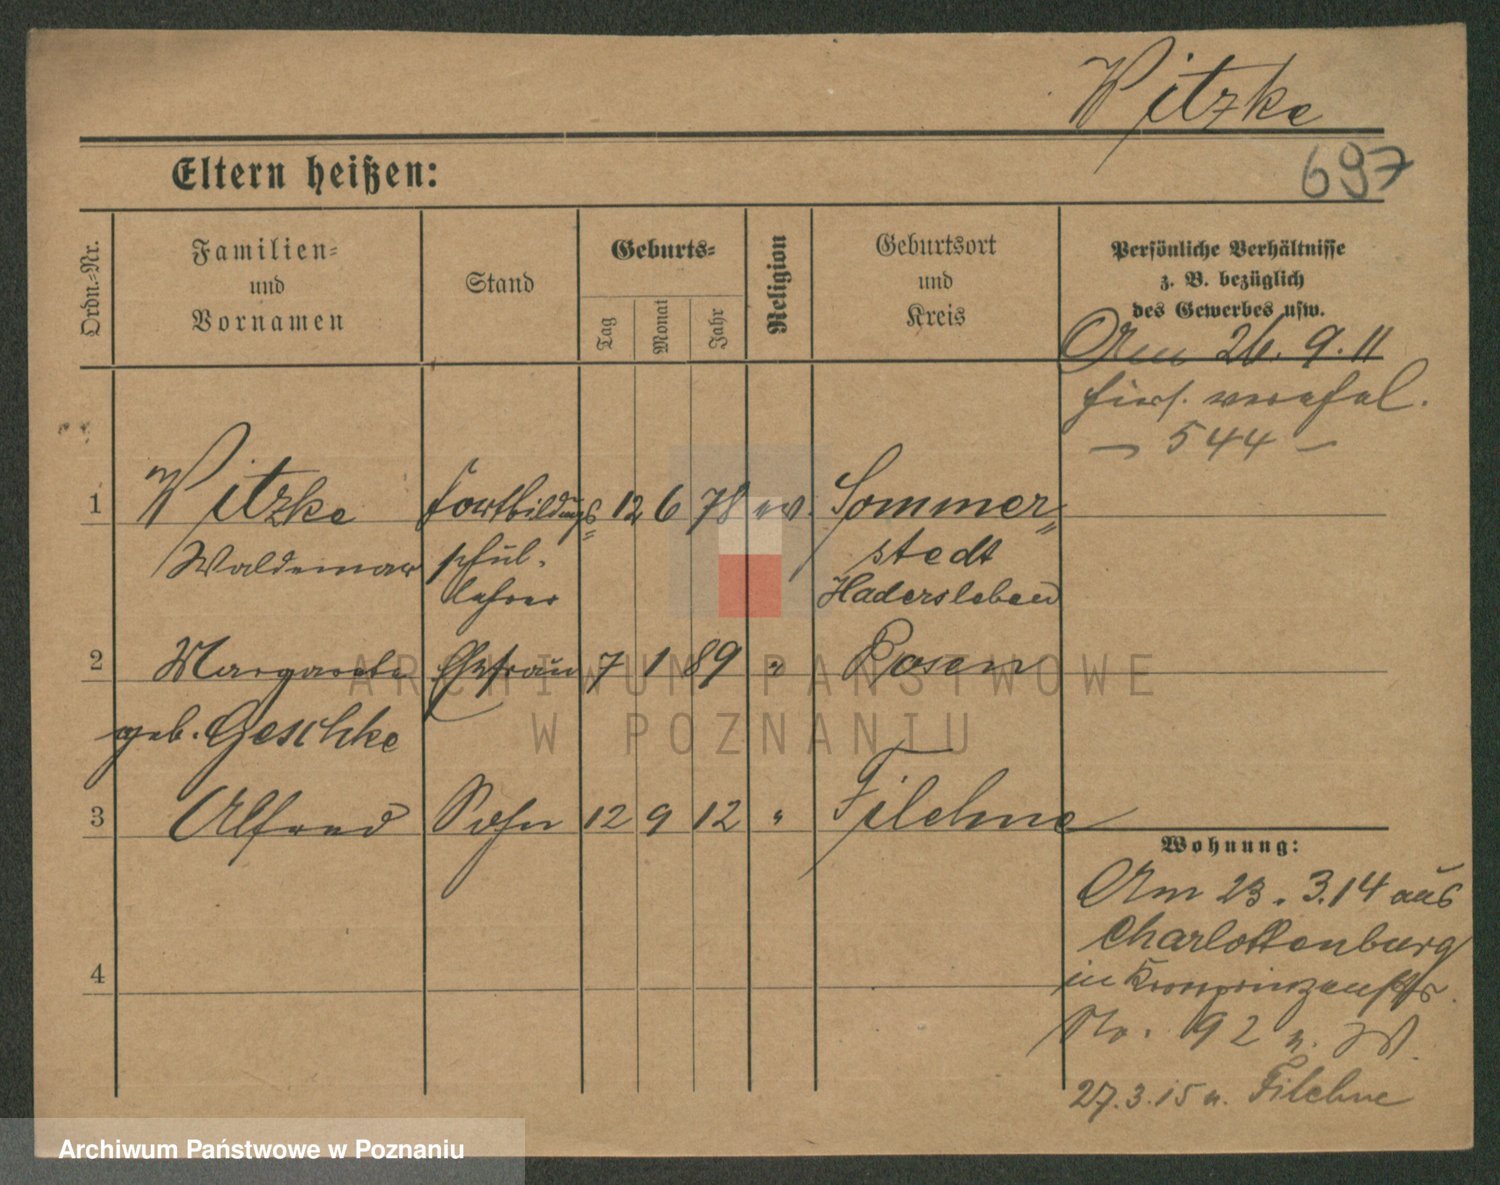 Witzke
697
Eltern heißen:
Ordn.-Nr.
Familien-
und
Vornamen
Stand
Geburts-
Tag
Monat
Jahr
Religion
Geburtsort
und
Kreis
Persönliche Verhältnisse
z. B. bezüglich
des Gewerbes usw.
Am 26. 9. 11
hier
— 544 —
1 Witzke Fortbildungs= 12 6 78 ev. Sommer=
Waldemar schul- stedt
lehrer Hadersleben
2 Margarete Ehefrau 7 1 89 " Posen
geb. Geschke
3 Alfred Sohn 12 9 12 " Filehne
4
Wohnung:
Am 23. 3. 14 aus
Charlottenburg
in Kronprinzenstr.
No. 92 n. W.
27.3.15 n. Filehne
ARCHIWUM PAŃSTWOWE
W POZNANIU
Archiwum Państwowe w Poznaniu